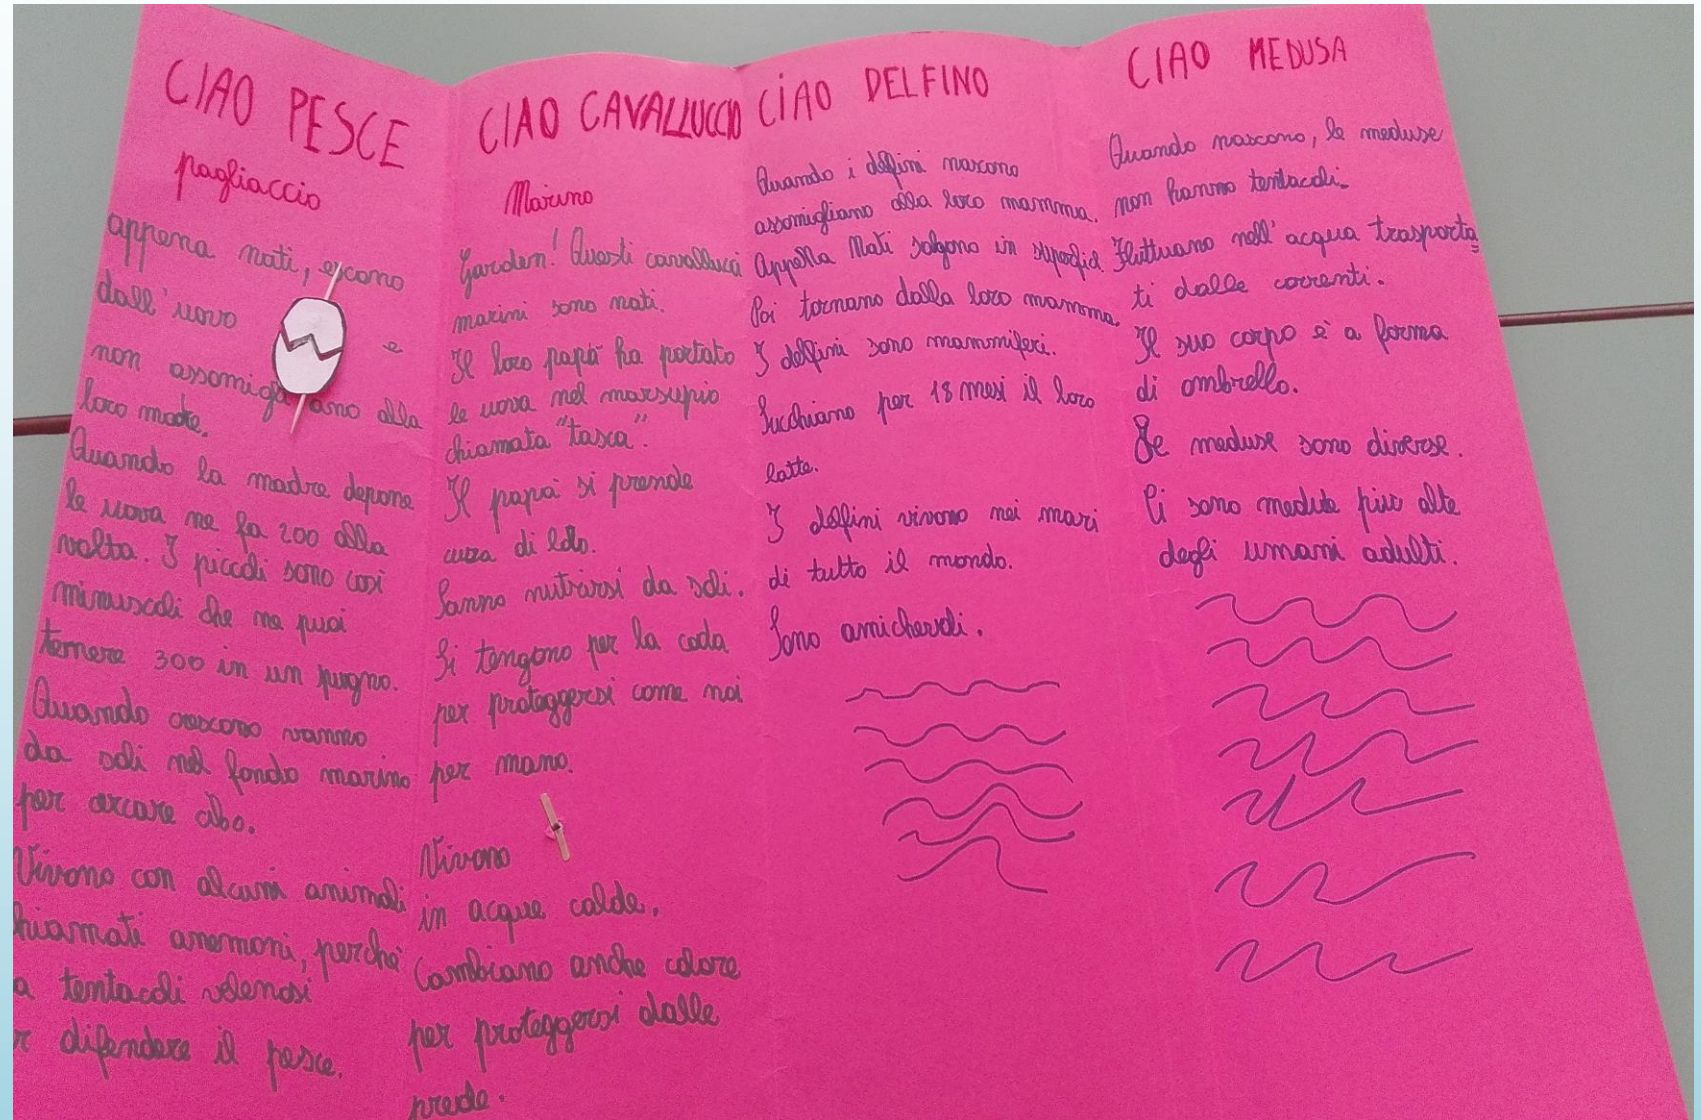 CIAO PESCE
pagliaccio
appena nati, escono
dall'uovo e
non assomigliano alla
loro madre.
Quando la madre depone
le uova ne fa 200 alla
volta. I piccoli sono così
minuscoli che ne puoi
temere 300 in un pugno.
Quando crescono vanno
da soli nel fondo marino
per cercare cibo.
Vivono con alcuni animali
hiamati anemoni, perché
a tentacoli velenosi
r difendere il pesce.
CIAO CAVALLUCCIO
Marino
! Questi cavallucci
marini sono nati.
Il loro papà ha portato
le uova nel marsupio
chiamata "tasca".
Il papà si prende
cura di loro.
Sanno nutrirsi da soli.
Si tengono per la coda
per proteggersi come noi
per mano.
Vivono
in acque calde.
Cambiano anche colore
per proteggersi dalle
prede.
CIAO DELFINO
Quando i delfini nascono
assomigliano alla loro mamma.
Appena Nati salgono in
Poi tornano dalla loro mamma.
I delfini sono mammiferi.
Succhiano per 18 mesi il loro
latte.
I delfini vivono nei mari
di tutto il mondo.
Sono amichevoli.
CIAO MEDUSA
Quando nascono, le meduse
non hanno tentacoli.
Fluttuano nell'acqua trasporta
ti dalle correnti.
Il suo corpo è a forma
di ombrello.
Le meduse sono diverse.
Ci sono meduse più alte
degli umani adulti.